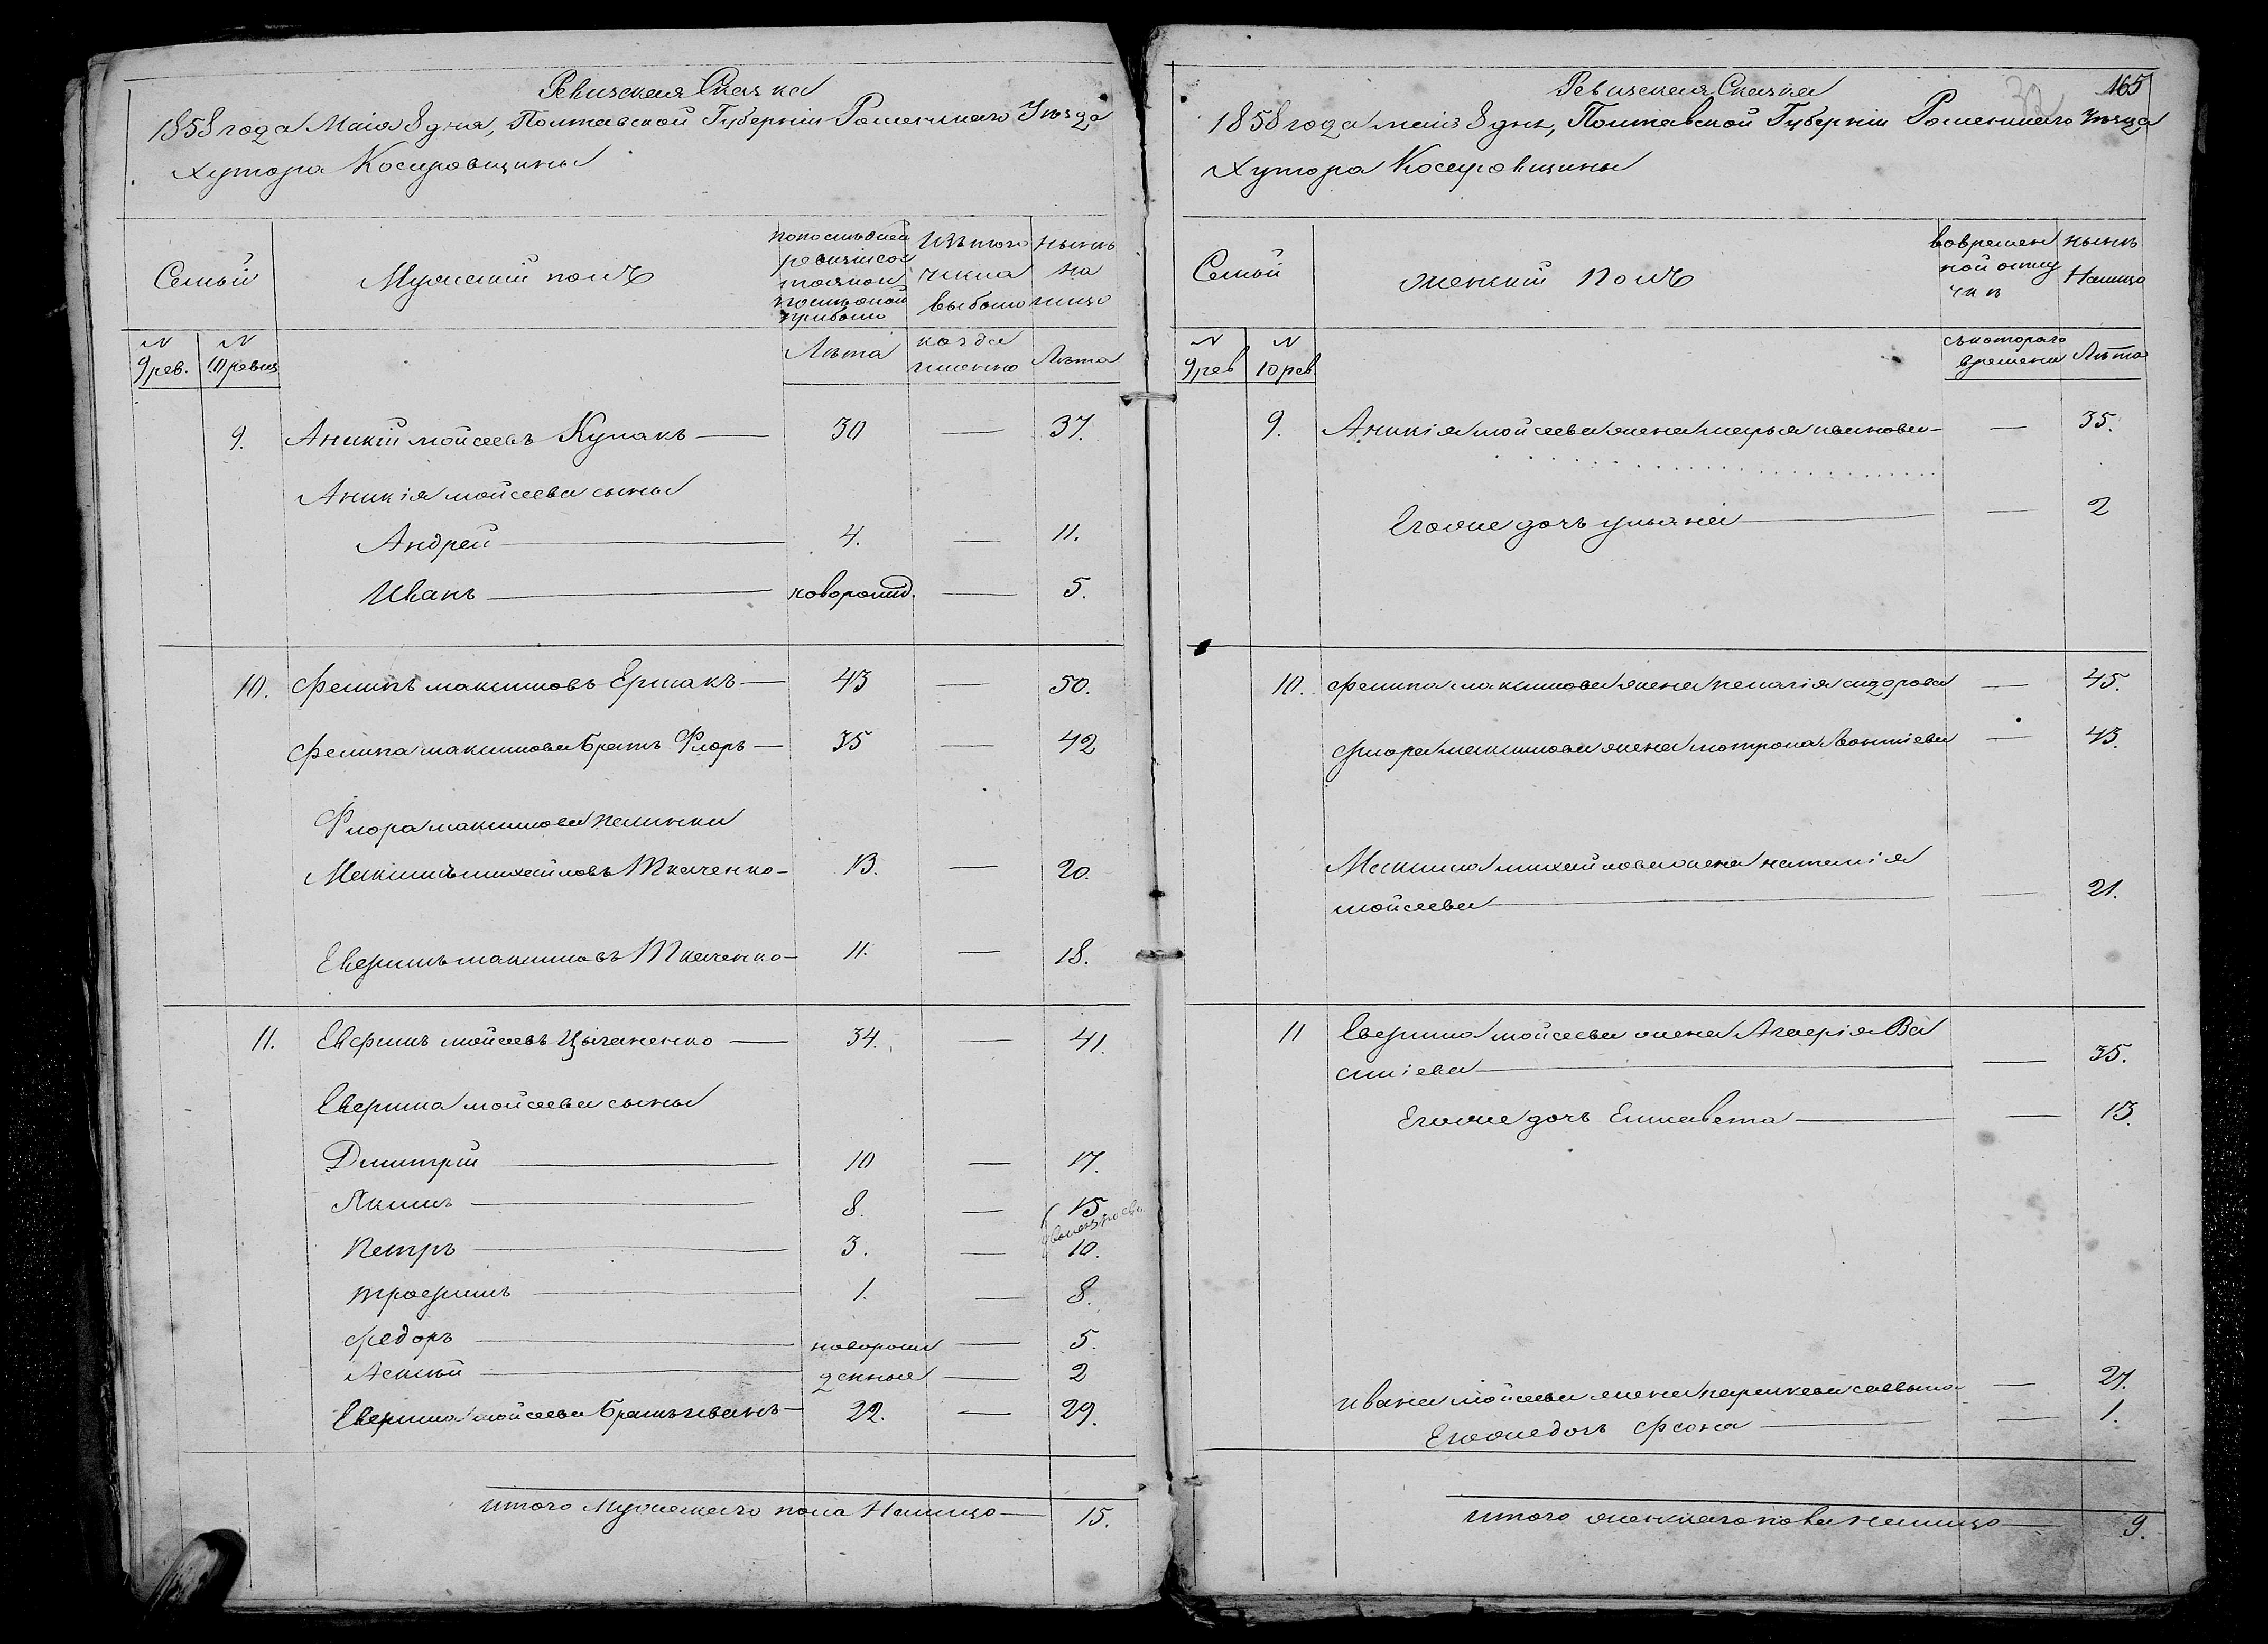 Ревизская Сказка
1858 года Маія 8 дня, Полтавской Губерніи Роменскаго Уѣзда
Хутора Косуровщины
Семьи
Мужескій полъ
попослѣдней
ревизіи со
стояло и
послѣ оной
прибыло
Изъ того
числа
выбыло
нынѣ
на
лицо
N
9 рев.
N
10 ревиз
Лѣта
когда
именно
Лѣта
9. Аникій мойсеевъ Кулакъ — 30 — 37.
Аникія мойсеева сыны
Андрей — 4. — 11.
Иванъ — новорожд. — 5.
10. Филипъ максимовъ Ермакъ — 43 — 50.
Филипа максимова братъ Флоръ — 35 — 42
Флора максимова
Максимъ михайловъ Ткаченко — 13. — 20.
Ефимъ максимовъ Ткаченко — 11. — 18.
11. Ефимъ мойсеевъ Цыганенко — 34. — 41.
Ефима мойсеева сыны
Димитрій — 10 — 17.
Якимъ — 8. — 15
Петръ — 3. — 10.
трофимъ — 1. — 8.
Федоръ — новорож — 5.
денные — 2
Ефима мойсеева братъ иванъ — 22. — 29.
итого Мужескаго пола Налицо — 15.
165
Ревизская Сказка
1858 года маія 8 дня, Полтавской Губерніи Роменскаго Уѣзда
Хутора Косуровщины
Семьи
женскій полъ
во времен
ной отлу
чкѣ
нынѣ
Налицо
N
9 рев
N
10 рев
съкотораго
времени
Лѣта
9. Аникія мойсеева жена марья иванова — — 35.
Егоже дочь ульяна — — 2
10. Филипа максимова жена пелагія сидорова — 45.
Флора максимова жена мотрона Леонтіева — 43.
Максима михайлова жена наталія
мойсеева — — 21.
11 Ефима мойсеева жена Агафія Ва
силіева — — 35.
Егоже дочь Елисавета — — 13.
ивана мойсеева жена параскева савина — 27.
Егоже дочь — — 1.
итого женскаго пола налицо — 9.